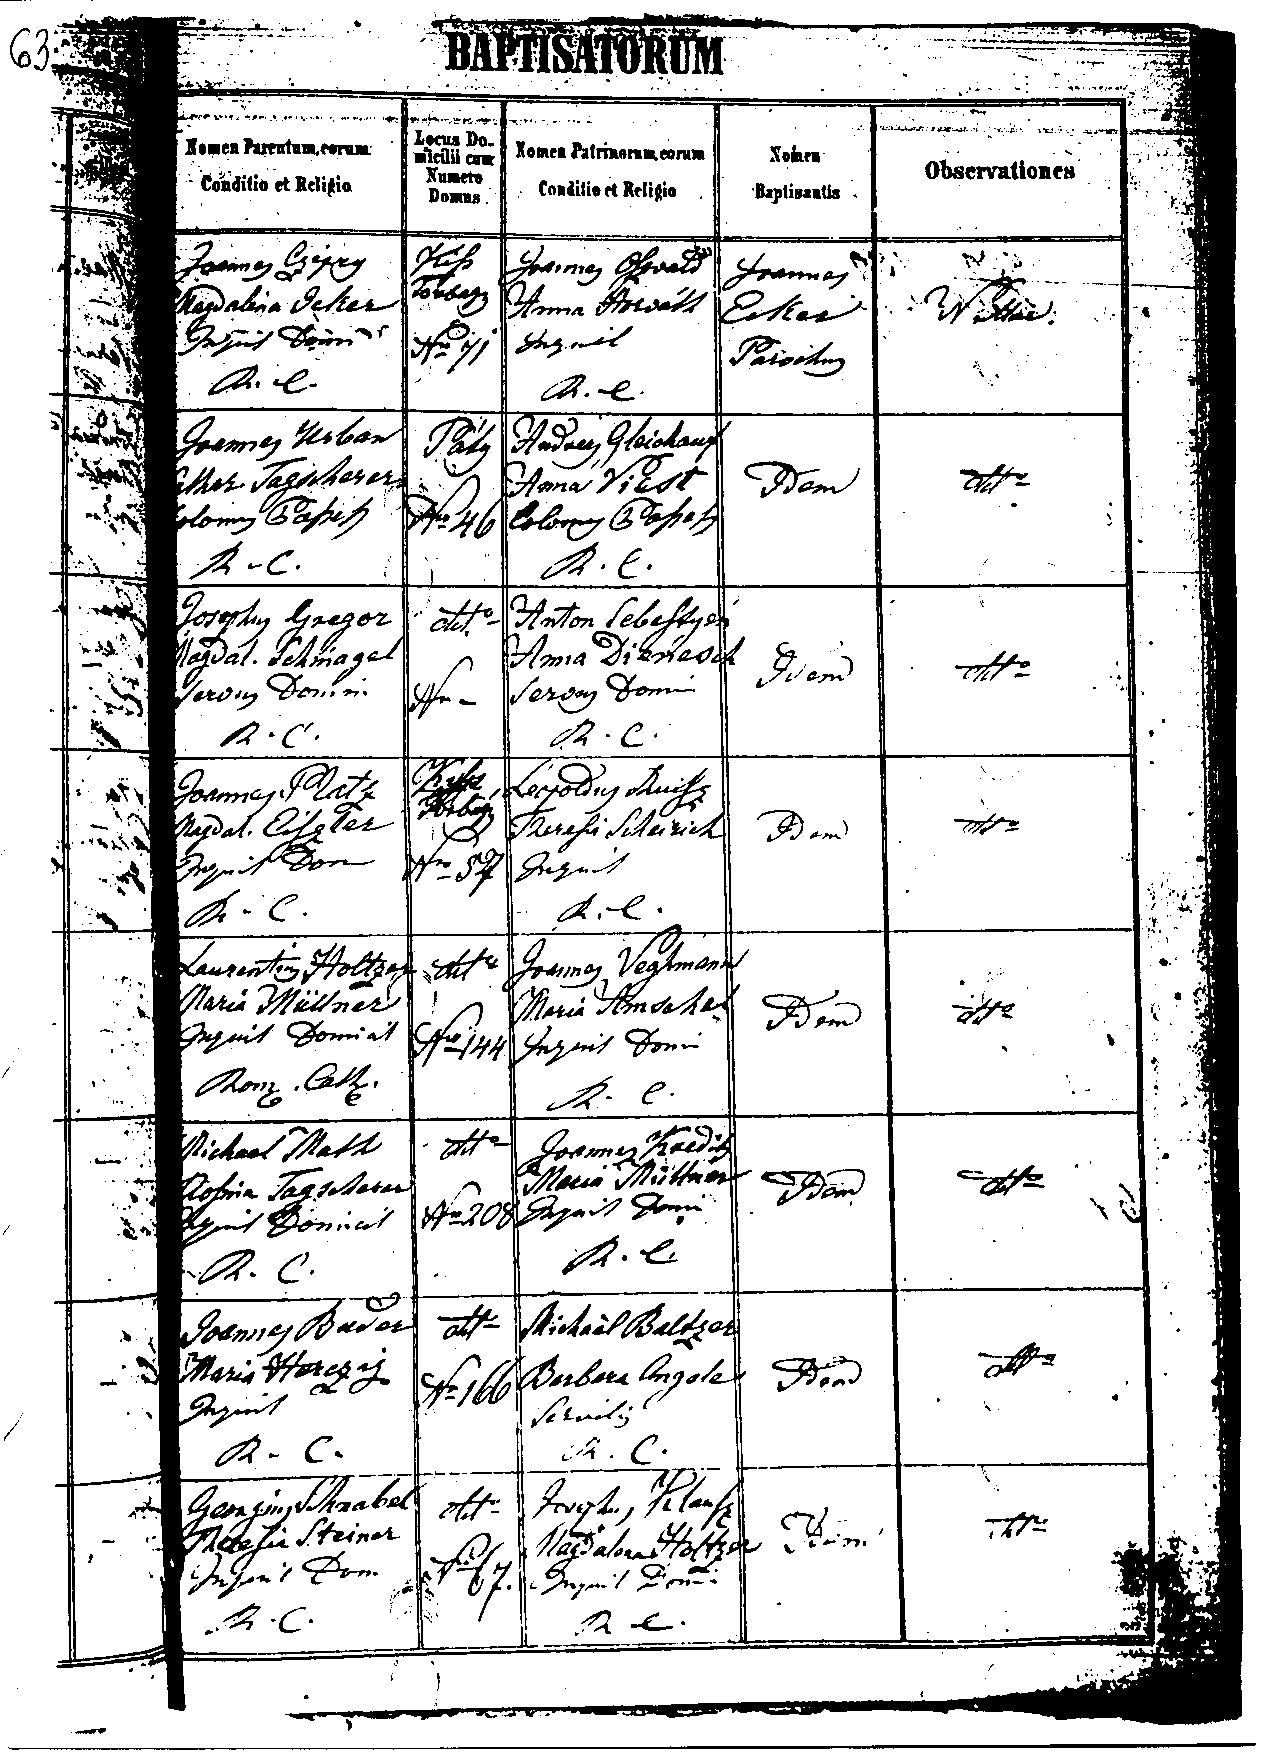 63
BAPTISATORUM
Nomen Parentum, eorum
Conditio et Religio
Locus Do-
micilii cum
Numero
Domus
Nomen Patrinorum, eorum
Conditio et Religio
Nomen
Baptisantis
Observationes
Joannes
Magdalina Ecker
Inquil Domi
R. C.
Kiss
Torbagy
Nro 71
Joannes Oswald
Anna Horváth
Inquil
R. C.
Joannes
Ecker
Parochus
Joannes Urban
Tagscherer
Colonus
R - C.
Páty
Nro 46
Andreas Gleichauf
Anna Viest
Colonus
R. C.
Idem
dtto
Josephus Gregor
Magdal. Schnagel
Servus Domin
R. C.
dtto
Nro -
Anton Sebestyén
Anna Dienesch
Servus Domin
R. C.
Idem
dtto
Joannes Platz
Magdal. Eiszler
Inquil Dom
R - C.
Kiss
Torbagy
Nro 57
Leopoldus
Theresia Scheirich
Inquil
R. C.
Idem
dtto
Laurentius Holtzer
Maria Müllner
Inquil Domical
Rom. Cath.
dtto
Nro 144
Joannes Veghmann
Maria Amschel
Inquil Domi
R. C.
Idem
dtto
Michael Math
Rosina Tagscherer
Inquil Domical
R. C.
dtto
Nro 208
Joannes
Maria Müllner
Inquil Domi
R. C.
Idem
dtto
Joannes Bader
Maria Herczig
Inquil
R - C.
dtto
Nro 166
Michaël Baltzer
Barbara Angele
R. C.
Idem
dtto
Georgius Schnabel
Theresia Steiner
Inquil Dom
R. C.
dtto
Nro 67.
Josephus Klausz
Magdalena Holtzer
Inquil Domi
R. C.
Idem
dtto